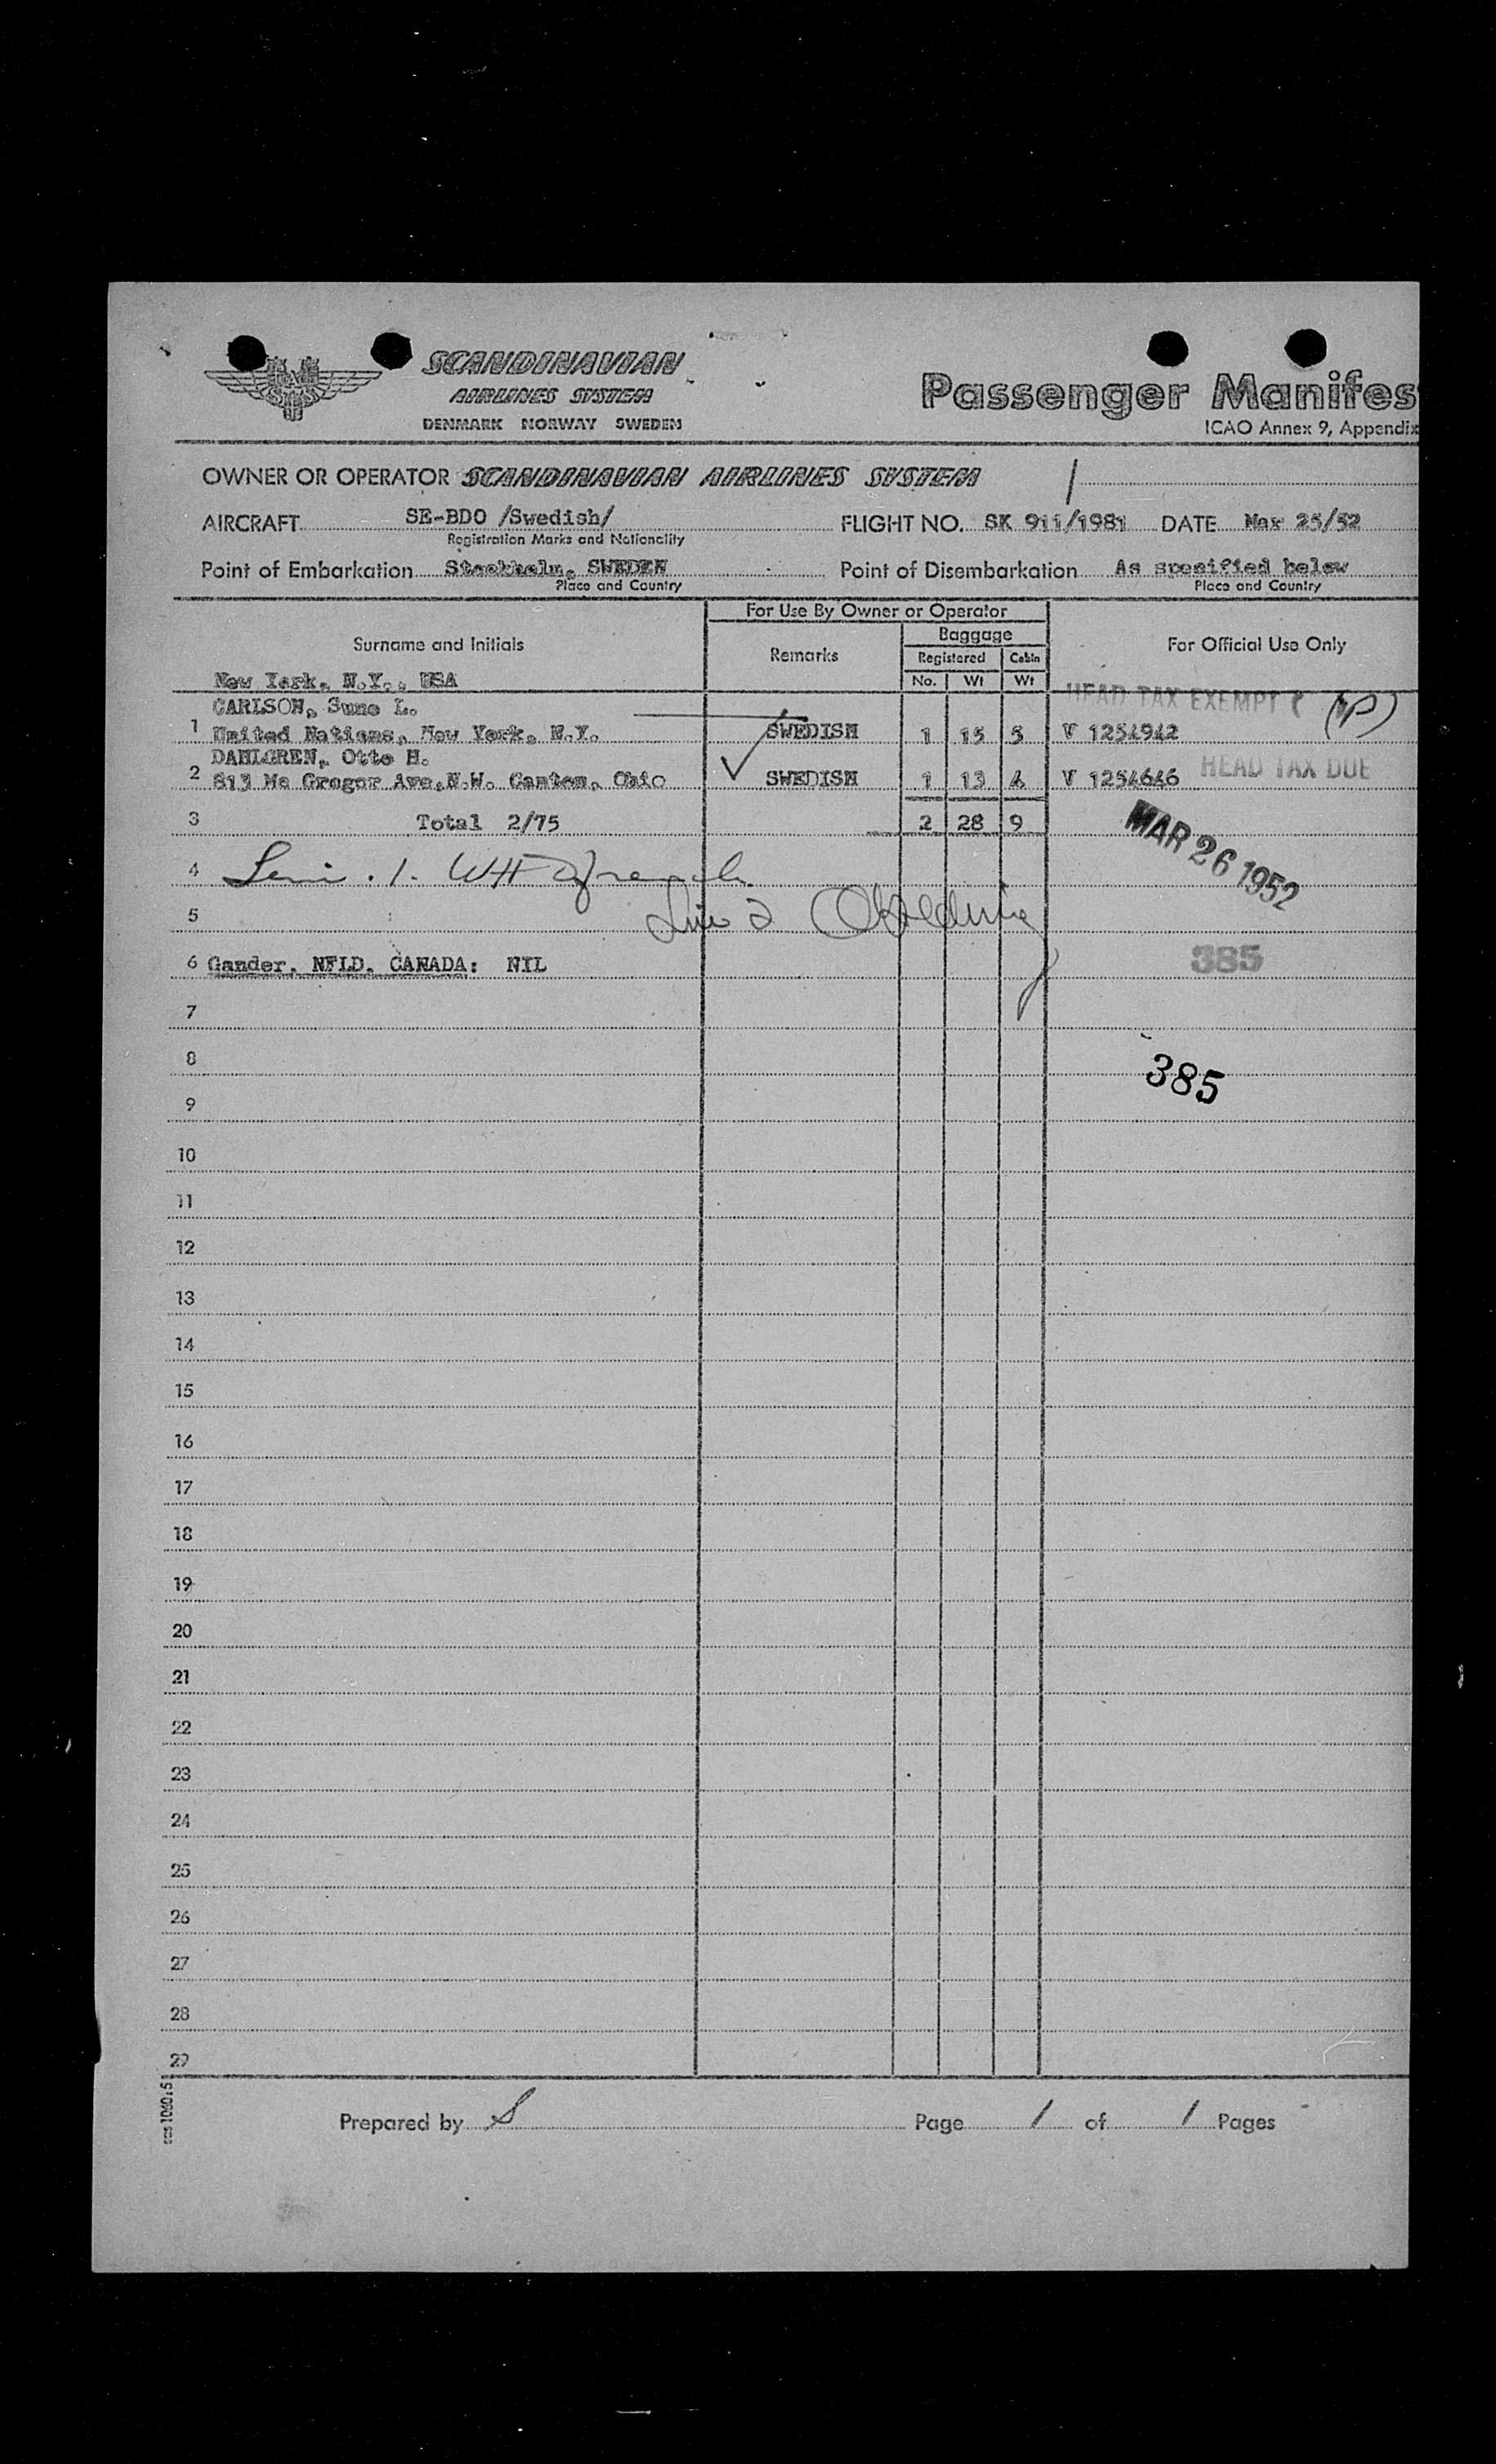 SCANDINAVIAN
AIRLINES SYSTEM
DENMARK NORWAY SWEDEN
Passenger Manifes
ICAO Annex 9, Appendix
OWNER OR OPERATOR SCANDINAVIAN AIRLINES SYSTEM
AIRCRAFT SE-BDO /Swedish/ FLIGHT NO. SK 911/1981 DATE Mar 25/52
Registration Marks and Nationality
Point of Embarkation Stockholm, SWEDEN Point of Disembarkation As specified below
Place and Country Place and Country
For Use By Owner or Operator
Surname and Initials Remarks Baggage For Official Use Only
Registered Cabin
No. Wt Wt
New York, N.Y., USA
HEAD TAX EXEMPT
CARLSON, Sune L.
1 United Nations, New York, N.Y. SWEDISH 1 15 5 V 1254942
DAHLGREN, Otto H.
2 813 Mc Gregor Ave,N.W. Canton, Ohio SWEDISH 1 13 4 V 1254646 HEAD TAX DUE
3 Total 2/75 2 28 9
MAR 26 1952
4
5
6 Gander, NFLD, CANADA: NIL 385
7
8 385
9
10
11
12
13
14
15
16
17
18
19
20
21
22
23
24
25
26
27
28
29
Prepared by S Page 1 of 1 Pages